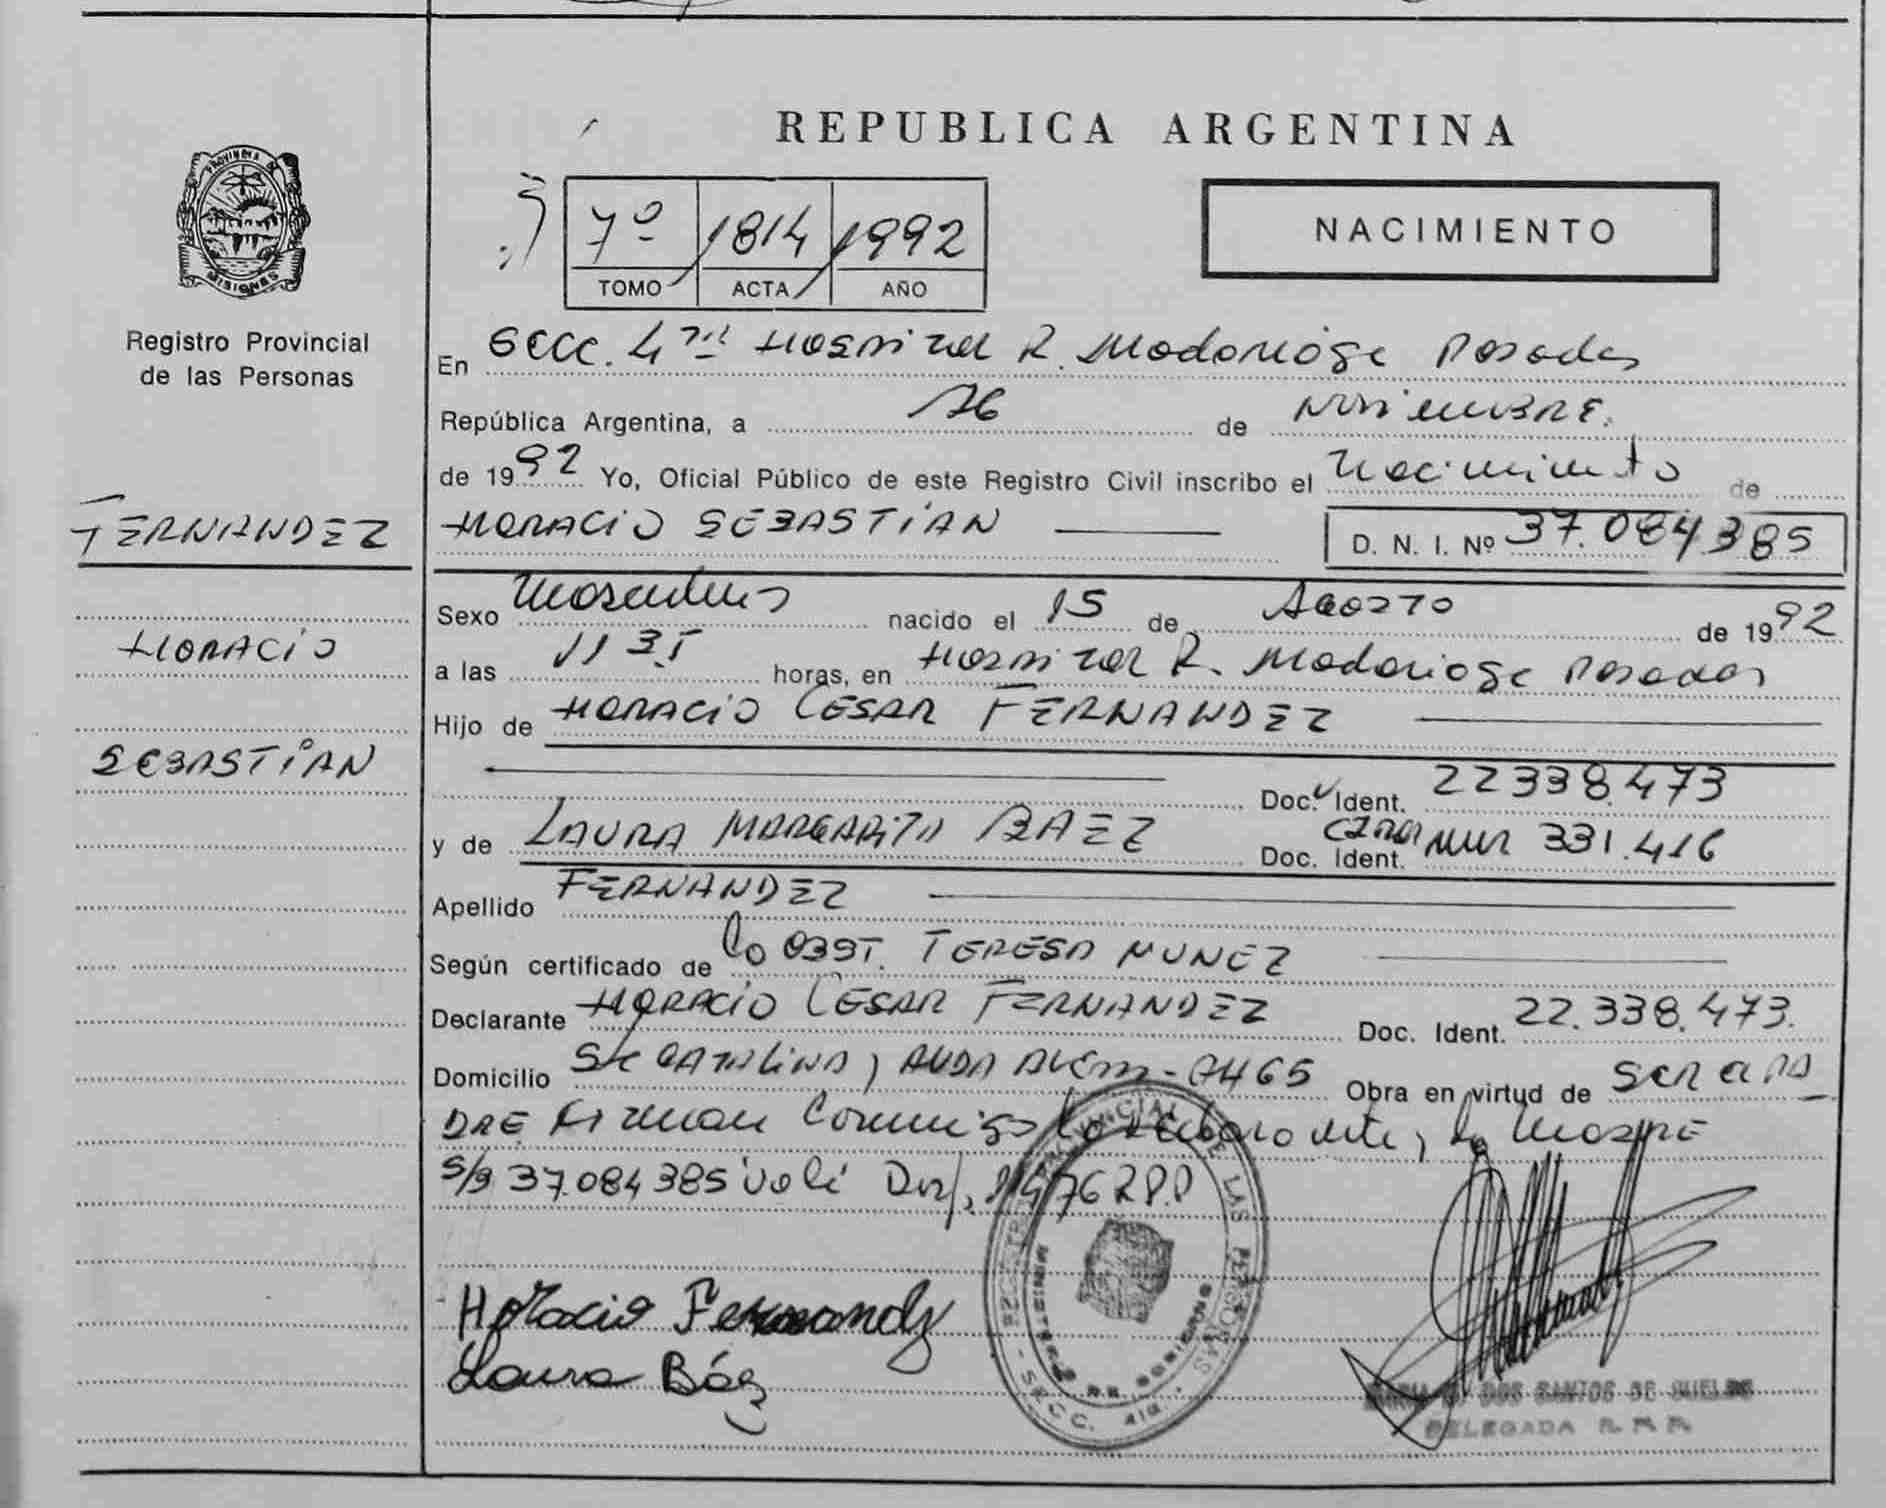 REPUBLICA ARGENTINA
PROVINCIA DE
MISIONES
Registro Provincial
de las Personas
7º 1814 1992
TOMO ACTA AÑO
NACIMIENTO
En Secc. 4ta Hospital R. Madariaga Posadas
República Argentina, a 26 de Noviembre.
de 1992 Yo, Oficial Público de este Registro Civil inscribo el Nacimiento de
FERNANDEZ
HORACIO SEBASTIAN
D. N. I. Nº 37.084385
HORACIO
SEBASTIAN
Sexo Masculino nacido el 15 de Agosto de 1992
a las horas, en Hospital R. Madariaga Posadas
Hijo de HORACIO CESAR FERNANDEZ
Doc. Ident. 22338.473
y de LAURA MARGARITA BAEZ Doc. Ident. 331.416
Apellido FERNANDEZ
Según certificado de la OBST. TERESA NUNEZ
Declarante HORACIO CESAR FERNANDEZ Doc. Ident. 22.338.473.
Domicilio Sta CATALINA, AVDA ALEM - Obra en virtud de ser el PA
DRE Firman Conmigo el declarante, la Madre
S/B 37.084385
Horacio Fernandz
Laura Báez
REGISTRO PROVINCIAL DE LAS PERSONAS
MINISTERIO DE GOBIERNO
SECC.
DOS SANTOS DE
DELEGADA R. P. P.